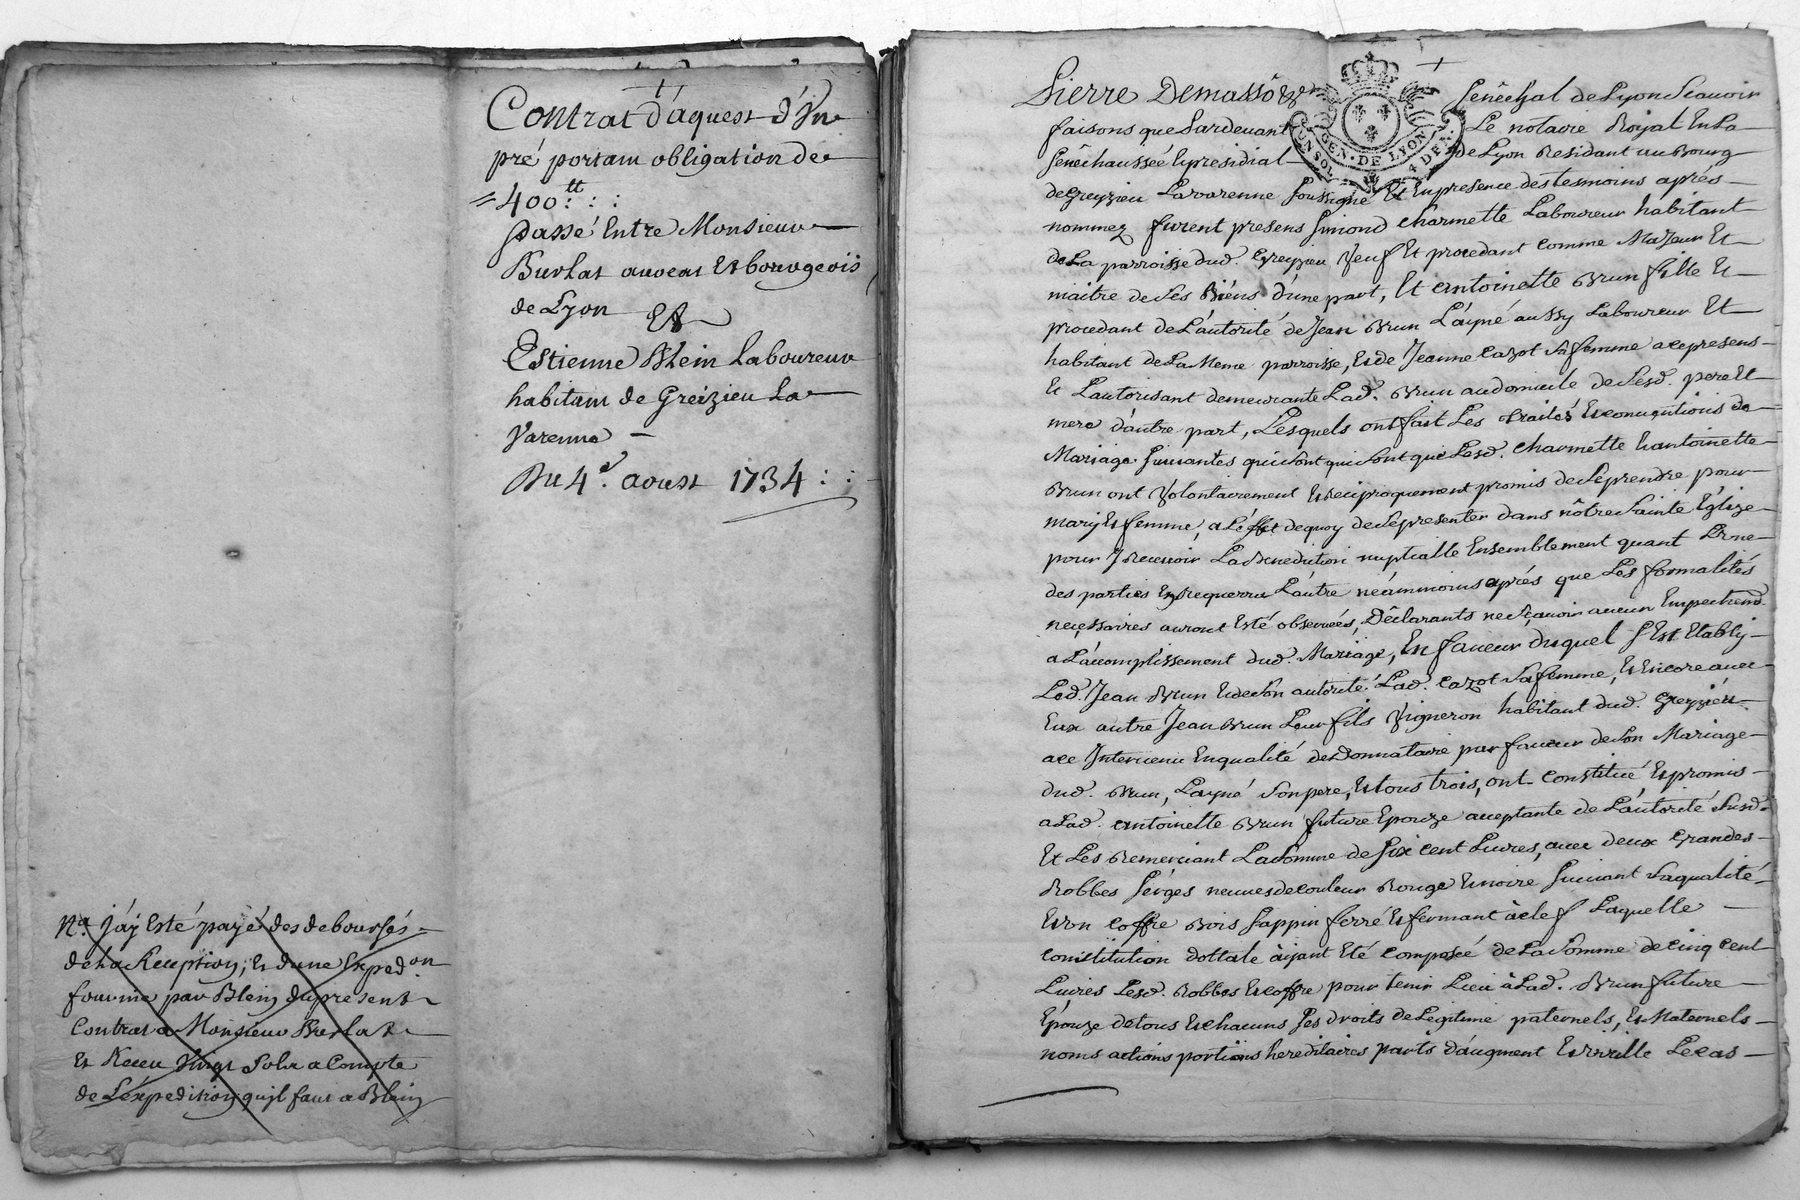 Contrat d'aquest d'Vn
pré portant obligation de
=400:tt : :
passé Entre Monsieur
Burlat auocat Et bourgeois
de Lyon Et
Estienne Blein Laboureur
habitant de Greizieu La
Varenne –
Du 4e. aoust 1734 : :
Na. J'aÿ Esté payé des debourses
de la Reception, Et d'une Exped.on
fournie par Blein du present
Contrat a Monsieur Burlat
Et Receu Vingt Sols a Compte
de L'expedition qu'il faut a Blein
Pierre Demassô Senêchal de Lyon Scauoir
faisons que Pardeuant Le notaire Roÿal En La
Senêchaussée Et presidial de Lyon Residant au Bourg
de Greyzieu Lavarenne Soussigné Et En presence des tesmoins aprés
nommez furent presens Simond Charmette Laboureur habitant
de La parroisse dud. Greyzieu Veuf Et procedant comme Majeur Et
maitre de Ses Biéns d'une part, Et Antoinette Brun fille Et
procedant de L'autorité de Jean Brun L'aÿné aussy Laboureur Et
habitant de La Meme parroisse, Et de Jeanne Cazot Sa femme a ce presens
Et L'autorisant demeurante Lad. Brun au domicile de Sesd. pere Et
mere d'autre part, Lesquels ont fait Les traités Et conuentions de
Mariage Suiuantes qui Sont qui Sont que Lesd. Charmette Et antoinette
Brun ont Volontairement Et reciproquement promis de Se prendre pour
mary Et femme, a L'effet de quoy de Se presenter dans nôtre Sainte Eglize
pour J Receuoir La Benediction nuptialle Ensemblement quant L'vne
des parties En requerra L'autre neámmoins aprés que Les formalités
necessaires auront Esté obseruées, Déclarants ne Sçauoir aucun Empechemt.
a L'accomplissement dud. Mariage, En faueur duquel S'Est Etably
Led. Jean Brun Et de Son autorité Lad. Cazot Sa femme, Et Encore auec
Eux autre Jean Brun Leur fils Vigneron habitant dud. Greyzieu
a ce Interuenu En qualité de Donnataire par faueur de Son Mariage
dud. Brun, L'aÿné Son pere, Et tous trois, ont Constitué, Et promis
a Lad. Antoinette Brun future Epouze acceptante de L'autorité Susd.
Et Les Remerciant La Somme de Six Cent Liures, auec deux Grandes
Robbes Serges neuues de couleur Rouge Et noire Suiuant Sa qualité,
Et vn Coffre Bois Sappin ferré Et fermant à clef Laquelle
Constitution dottale aÿant Eté Composée de La Somme de Cinq Cent
Liures Lesd. Robbes Et Coffre pour tenir Lieu à Lad. Brun future
Epouze de tous Et chacuns Ses droits de Legitime paternels, Et Maternels
noms actions portions hereditaires parts d'augment Et Le cas